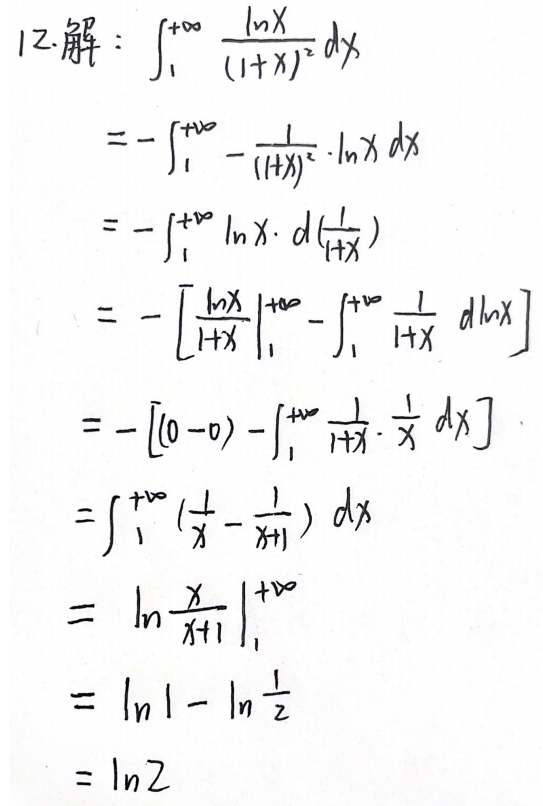 12.解: ∫₁^{+∞} \frac{lnx}{(1+x)²} dx
= - ∫₁^{+∞} - \frac{1}{(1+x)²} · lnx dx
= - ∫₁^{+∞} lnx · d(\frac{1}{1+x})
= - [ \frac{lnx}{1+x} |₁^{+∞} - ∫₁^{+∞} \frac{1}{1+x} dlnx ]
= - [(0-0) - ∫₁^{+∞} \frac{1}{1+x} · \frac{1}{x} dx ]
= ∫₁^{+∞} ( \frac{1}{x} - \frac{1}{x+1} ) dx
= ln \frac{x}{x+1} |₁^{+∞}
= ln1 - ln \frac{1}{2}
= ln2